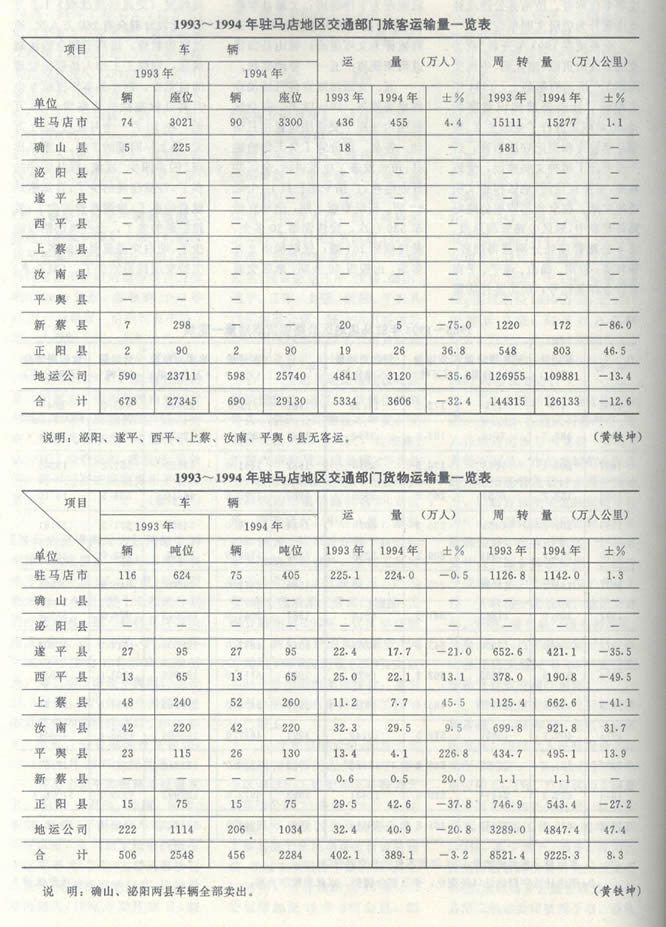 1993～1994年驻马店地区交通部门旅客运输量一览表
项目 车 辆 运 量 (万人) 周 转 量 (万人公里)
1993年 1994年
单位 辆 座位 辆 座位 1993年 1994年 ±% 1993年 1994年 ±%
驻马店市 74 3021 90 3300 436 455 4.4 15111 15277 1.1
确山县 5 225 — — 18 — — 481 —
泌阳县 — — — — — — — —
遂平县 — — — — — — — —
西平县 — — — — — — — —
上蔡县 — — — — — — — —
汝南县 — — — — — — — —
平舆县 — — — — — — — —
新蔡县 7 298 — — 20 5 —75.0 1220 172 —86.0
正阳县 2 90 2 90 19 26 36.8 548 803 46.5
地运公司 590 23711 598 25740 4841 3120 —35.6 126955 109881 —13.4
合 计 678 27345 690 29130 5334 3606 —32.4 144315 126133 —12.6
说明：泌阳、遂平、西平、上蔡、汝南、平舆6县无客运。 (黄轶坤)
1993～1994年驻马店地区交通部门货物运输量一览表
项目 车 辆 运 量 (万人) 周 转 量 (万人公里)
1993年 1994年
单位 辆 吨位 辆 吨位 1993年 1994年 ±% 1993年 1994年 ±%
驻马店市 116 624 75 405 225.1 224.0 —0.5 1126.8 1142.0 1.3
确山县 — — — — — — — — — —
泌阳县 — — — — — — — — — —
遂平县 27 95 27 95 22.4 17.7 —21.0 652.6 421.1 —35.5
西平县 13 65 13 65 25.0 22.1 13.1 378.0 190.8 —49.5
上蔡县 48 240 52 260 11.2 7.7 45.5 1125.4 662.6 —41.1
汝南县 42 220 42 220 32.3 29.5 9.5 699.8 921.8 31.7
平舆县 23 115 26 130 13.4 4.1 226.8 434.7 495.1 13.9
新蔡县 — — — — 0.6 0.5 20.0 1.1 1.1 —
正阳县 15 75 15 75 29.5 42.6 —37.8 746.9 543.4 —27.2
地运公司 222 1114 206 1034 32.4 40.9 —20.8 3289.0 4847.4 47.4
合 计 506 2548 456 2284 402.1 389.1 —3.2 8521.4 9225.3 8.3
说 明：确山、泌阳两县车辆全部卖出。 (黄轶坤)